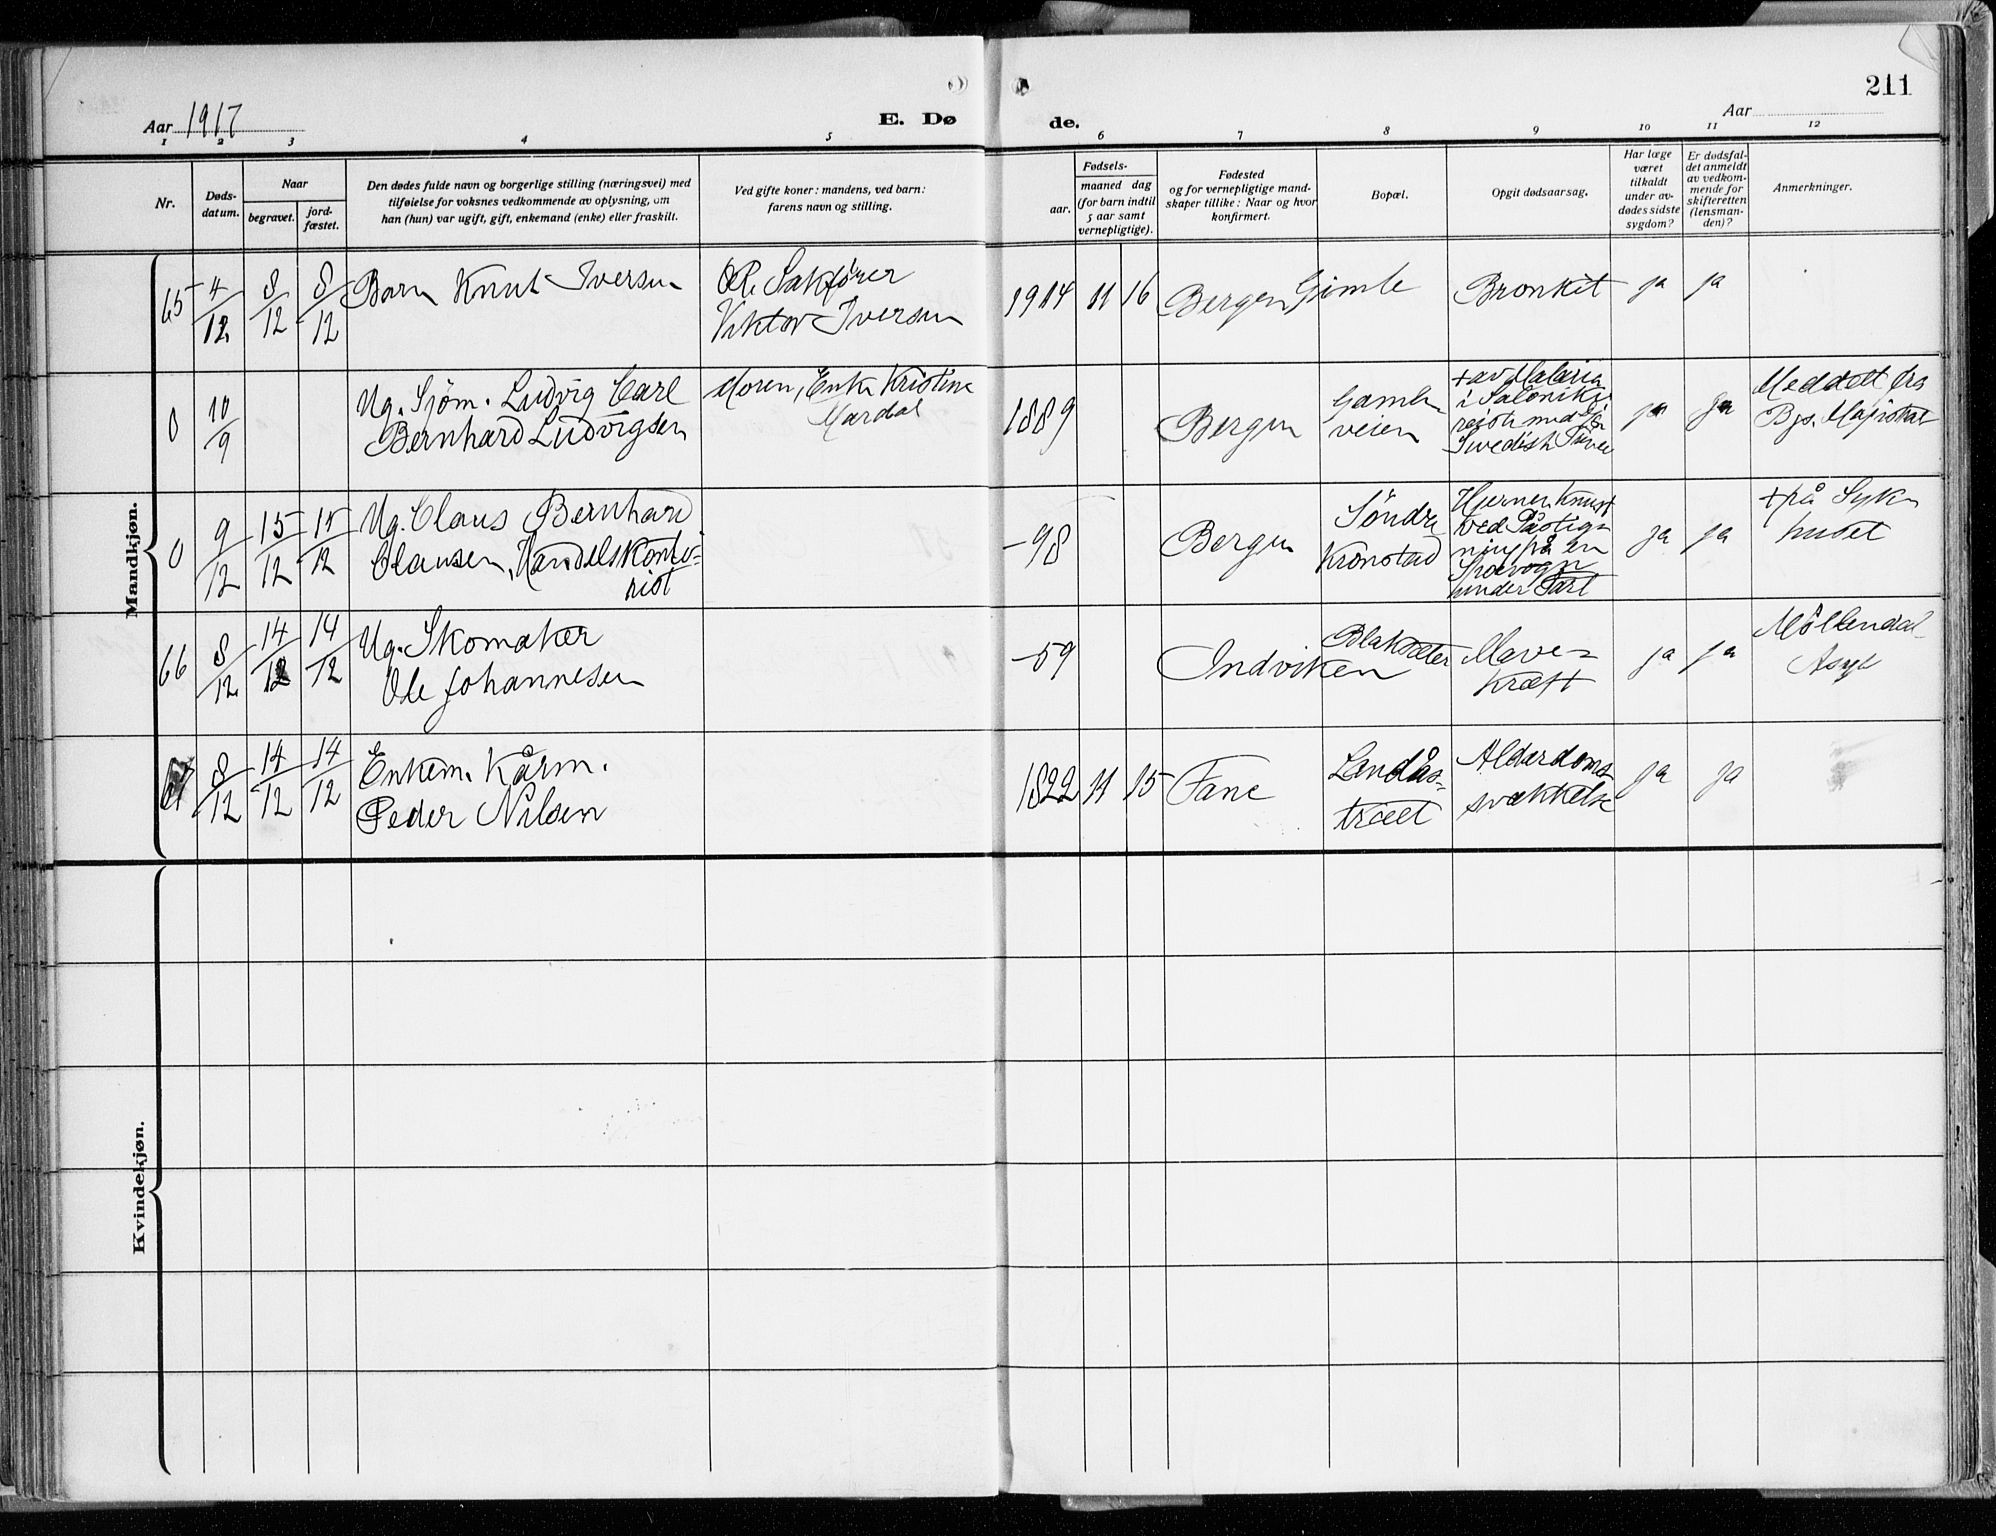 211
Aar 1917
E. Dø
de.
Aar
1 2 3 4 5 6 7 8 9 10 11 12
Nr.
Døds-
datum.
Naar
begravet.
jord-
fæstet.
Den dødes fulde navn og borgerlige stilling (næringsvei) med
tilføielse for voksnes vedkommende av oplysning, om
han (hun) var ugift, gift, enkemand (enke) eller fraskilt.
Ved gifte koner: mandens, ved barn:
farens navn og stilling.
Fødsels-
aar.
maaned dag
(for barn indtil
5 aar samt
vernepligtige).
Fødested
og for vernepligtige mand-
skaper tillike: Naar og hvor
konfirmert.
Bopæl.
Opgit dødsaarsag.
Har læge
været
tilkaldt
under av-
dødes sidste
sygdom?
Er dødsfal-
det anmeldt
av vedkom-
mende for
skifteretten
(lensman-
den)?
Anmerkninger.
Mandkjøn.
65 4/12 8/12 8/12
Barn Knut Iversen
O.R. Sakfører
Viktor Iversen
1914 11 16 Bergen Gimle Bronkit ja ja
0 10/9
Ug. Sjøm. Ludvig Carl
Bernhard Ludvigsen
Moren, Enke Kristine
Mardal
1889 Bergen
Gamle
veien
+ av Malaria
i Saloniki
reiste med
Swedish
ja ja
Meddelt fra
Bgs. Magistrat
0 9/12 15/12 15/12
Ug. Claus Bernhard
Clausen, Handelskonto-
rist
-98 Bergen
Søndre
Kronstad
Hjernen Knust
ved Påstig-
ning på en
Sporvogn
under Fart
ja ja
+ på Syke
huset
66 8/12 14/12 14/12
Ug. Skomaker
Ole Johannesen
-59 Indviken
Blaksæter
Mave-
kræft
ja ja
Møllendal
Asyl
67 8/12 14/12 14/12
Enkem. Kårm.
Peder Nilsen
1822 11 15 Fane
Landås-
træet
Alderdoms-
svækkelse
ja ja
Kvindekjøn.